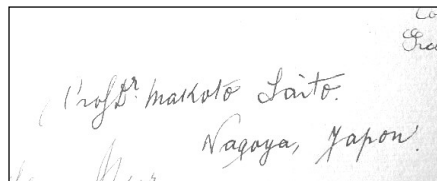 Prof Dr. Makoto Saito.
Nagoya, Japon.